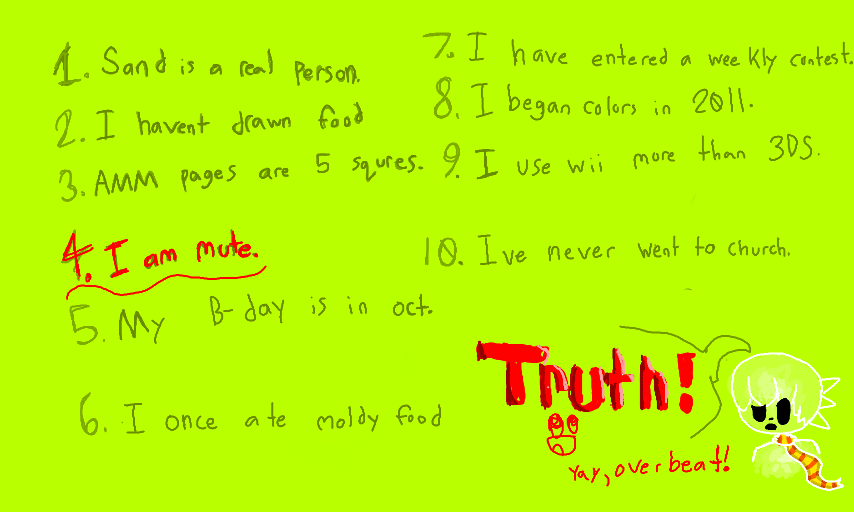 1. Sand is a real person.
2. I havent drawn food
3. AMM pages are 5 squres.
4. I am mute.
5. My B-day is in oct.
6. I once ate moldy food
7. I have entered a weekly contest.
8. I began colors in 2011.
9. I use wii more than 3DS.
10. Ive never went to church.
Truth!
Yay, over beat!